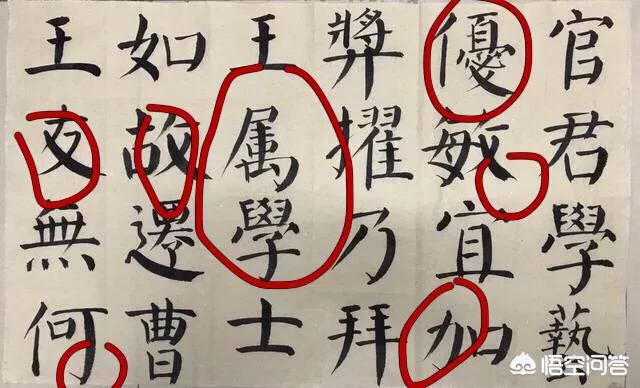 官君學藝
優敏宜加
奬擢乃拜
王属學士
如故遷曹
王友無何
悟空问答